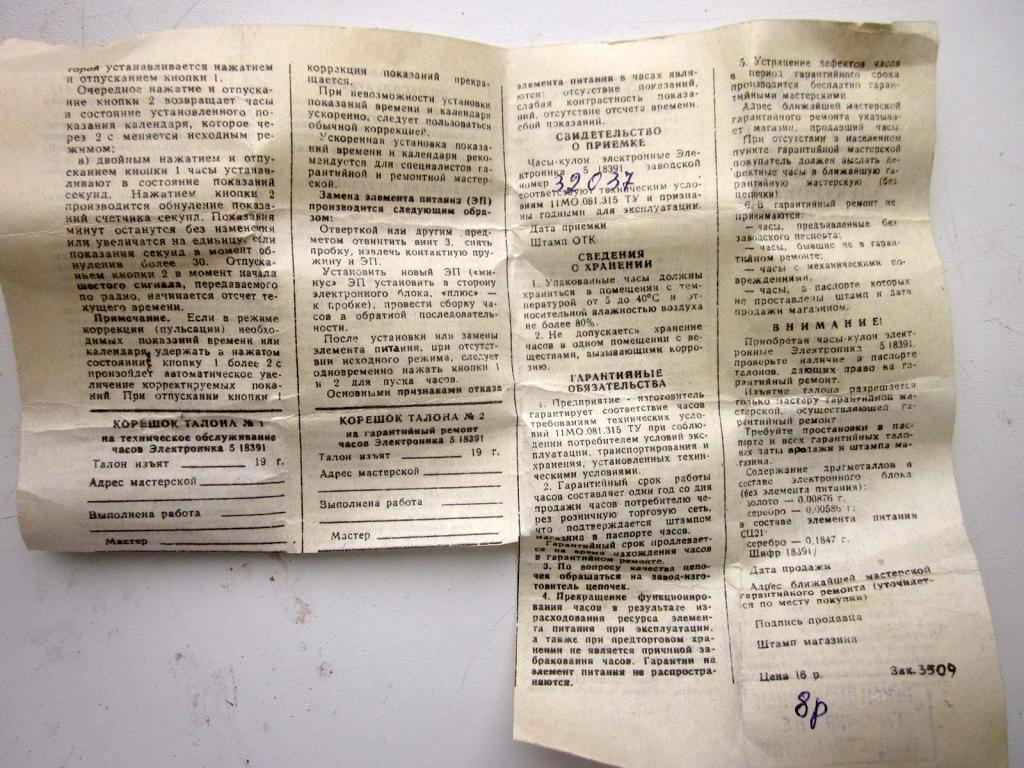 торой устанавливается нажатием
и отпусканием кнопки 1.
Очередное нажатие и отпуска-
ние кнопки 2 возвращает часы
в состояние установленного по-
казания календаря, которое че-
рез 2 с меняется исходным ре-
жимом;
в) двойным нажатием и отпу-
сканием кнопки 1 часы устана-
вливают в состояние показаний
секунд. Нажатием кнопки 2
производится обнуление показа-
ний счетчика секунд. Показания
минут останутся без изменения
или увеличатся на единицу, если
показания секунд в момент об-
нуления более 30. Отпуска-
нием кнопки 2 в момент начала
шестого сигнала, передаваемого
по радио, начинается отсчет те-
кущего времени.
Примечание. Если в режиме
коррекции (пульсации) необхо-
димых показаний времени или
календаря удержать в нажатом
состоянии кнопку 1 более 2 с
произойдет автоматическое уве-
личение корректируемых пока-
ний При отпускании кнопки 1
КОРЕШОК ТАЛОНА № 1
на техническое обслуживание
часов Электроника 5 18391
Талон изъят 19 г.
Адрес мастерской
Выполнена работа
Мастер
коррекция показаний прекра-
щается.
При невозможности установки
показаний времени и календаря
ускоренно, следует пользоваться
обычной коррекцией.
Ускоренная установка показа-
ний времени и календаря реко-
мендуется для специалистов га-
рантийной и ремонтной мастер-
ской.
Замена элемента питания (ЭП)
производится следующим обра-
зом:
Отверткой или другим пред-
метом отвинтить винт 3, снять
пробку, извлечь контактную пру-
жину и ЭП.
Установить новый ЭП («ми-
нус» ЭП установить в сторону
электронного блока, «плюс» —
к пробке), провести сборку ча-
сов в обратной последователь-
ности.
После установки или замены
элемента питания, при отсутст-
вии исходного режима, следует
одновременно нажать кнопки 1
и 2 для пуска часов.
Основными признаками отказа
КОРЕШОК ТАЛОНА № 2
на гарантийный ремонт
часов Электроника 5 18391
Талон изъят 19 г.
Адрес мастерской
Выполнена работа
Мастер
элемента питания в часах явля-
ются: отсутствие показаний,
слабая контрастность показа-
ний, отсутствие отсчета времени,
сбой показаний.
СВИДЕТЕЛЬСТВО
О ПРИЕМКЕ
Часы-кулон электронные Эле-
ктроника 5 18391 заводской
номер 32037
соответствуют техническим усло-
виям 11МО.081.315 ТУ и призна-
ны годными для эксплуатации.
Дата приемки
Штамп ОТК
СВЕДЕНИЯ
О ХРАНЕНИИ
1. Упакованные часы должны
храниться в помещении с тем-
пературой от 5 до 40°С и от-
носительной влажностью воздуха
не более 80%.
2. Не допускается хранение
часов в одном помещении с ве-
ществами, вызывающими корро-
зию.
ГАРАНТИЙНЫЕ
ОБЯЗАТЕЛЬСТВА
1. Предприятие-изготовитель
гарантирует соответствие часов
требованиям технических усло-
вий 11МО.081.315 ТУ при соблю-
дении потребителем условий экс-
плуатации, транспортирования и
хранения, установленных техни-
ческими условиями.
2. Гарантийный срок работы
часов составляет один год со дня
продажи часов потребителю че-
рез розничную торговую сеть,
что подтверждается штампом
магазина в паспорте часов.
Гарантийный срок продлевает-
ся на время нахождения часов
в гарантийном ремонте.
3. По вопросу качества цепо-
чек обращаться на завод-изго-
товитель цепочек.
4. Прекращение функциониро-
вания часов в результате из-
расходования ресурса элемен-
та питания при эксплуатации,
а также при предторговом хра-
нении не является причиной за-
бракования часов. Гарантии на
элемент питания не распростра-
няются.
5. Устранение дефектов часов
в период гарантийного срока
производится бесплатно гаран-
тийными мастерскими
Адрес ближайшей мастерской
гарантийного ремонта указыва-
ет магазин, продавший часы.
При отсутствии в населенном
пункте гарантийной мастерской
покупатель должен выслать де-
фектные часы в ближайшую га-
рантийную мастерскую (без
цепочки).
6. В гарантийный ремонт не
принимаются:
— часы, предъявленные без
заводского паспорта;
— часы, бывшие не в гаран-
тийном ремонте;
— часы с механическими по-
вреждениями;
— часы, в паспорте которых
не проставлены штамп и дата
продажи магазином.
ВНИМАНИЕ!
Приобретая часы-кулон элект-
ронные Электроника 5 18391,
проверьте наличие в паспорте
талонов, дающих право на га-
рантийный ремонт.
Изъятие талона разрешается
только мастеру гарантийной ма-
стерской, осуществляющей га-
рантийный ремонт
Требуйте простановки в пас-
порте и всех гарантийных тало-
нах даты продажи и штампа ма-
газина.
Содержание драгметаллов в
составе электронного блока
(без элемента питания):
золото — 0,00876 г.
серебро — 0,00586 г;
в составе элемента питания
СЦ21
серебро — 0,1847 г.
Шифр 18391/
Дата продажи
Адрес ближайшей мастерской
гарантийного ремонта (уточняет-
ся по месту покупки)
Подпись продавца
Штамп магазина
Цена 16 р. Зак. 3509
8р